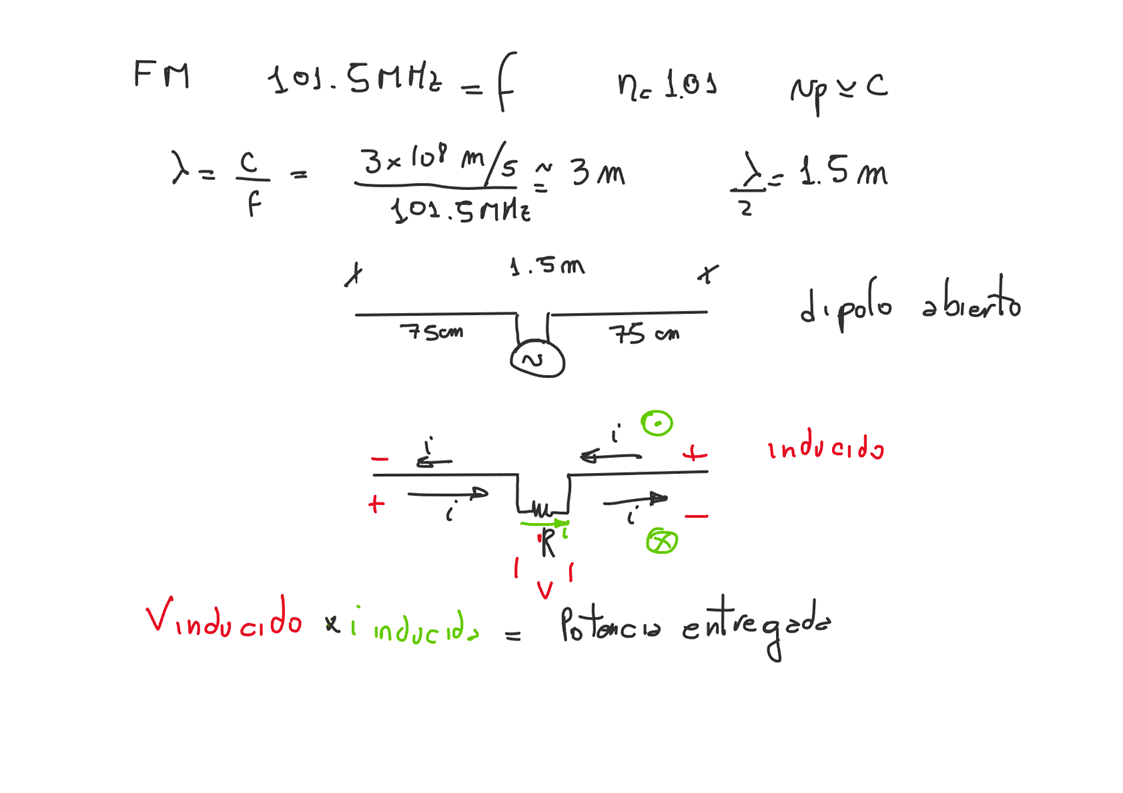 FM 101.5MHz = f n= 1.01 Vp ≃ C
λ = c/f = 3×10⁸ m/s / 101.5MHz ≅ 3m λ/2 = 1.5m
x 1.5m x
dipolo abierto
75cm 75 cm
~
i i
- + inducido
+ i i -
i
R
V
Vinducido x i inducida = Potencia entregada